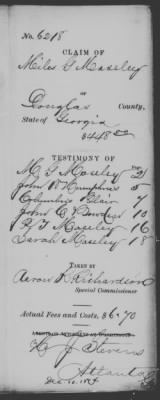 No. 6218
CLAIM OF
Miles G Maseley
OF
Douglas County,
State of Georgia
$448 00
TESTIMONY OF
Page
M G Moseley 2
John W Humphries 5
Columbus Blair 7
John C Bowden 10
R F Moseley 16
Sarah Moseley 18
TAKEN BY
Aaron R Richardson
Special Commissioner
Actual Fees and Costs, $6.70
J Stevens
Atlanta